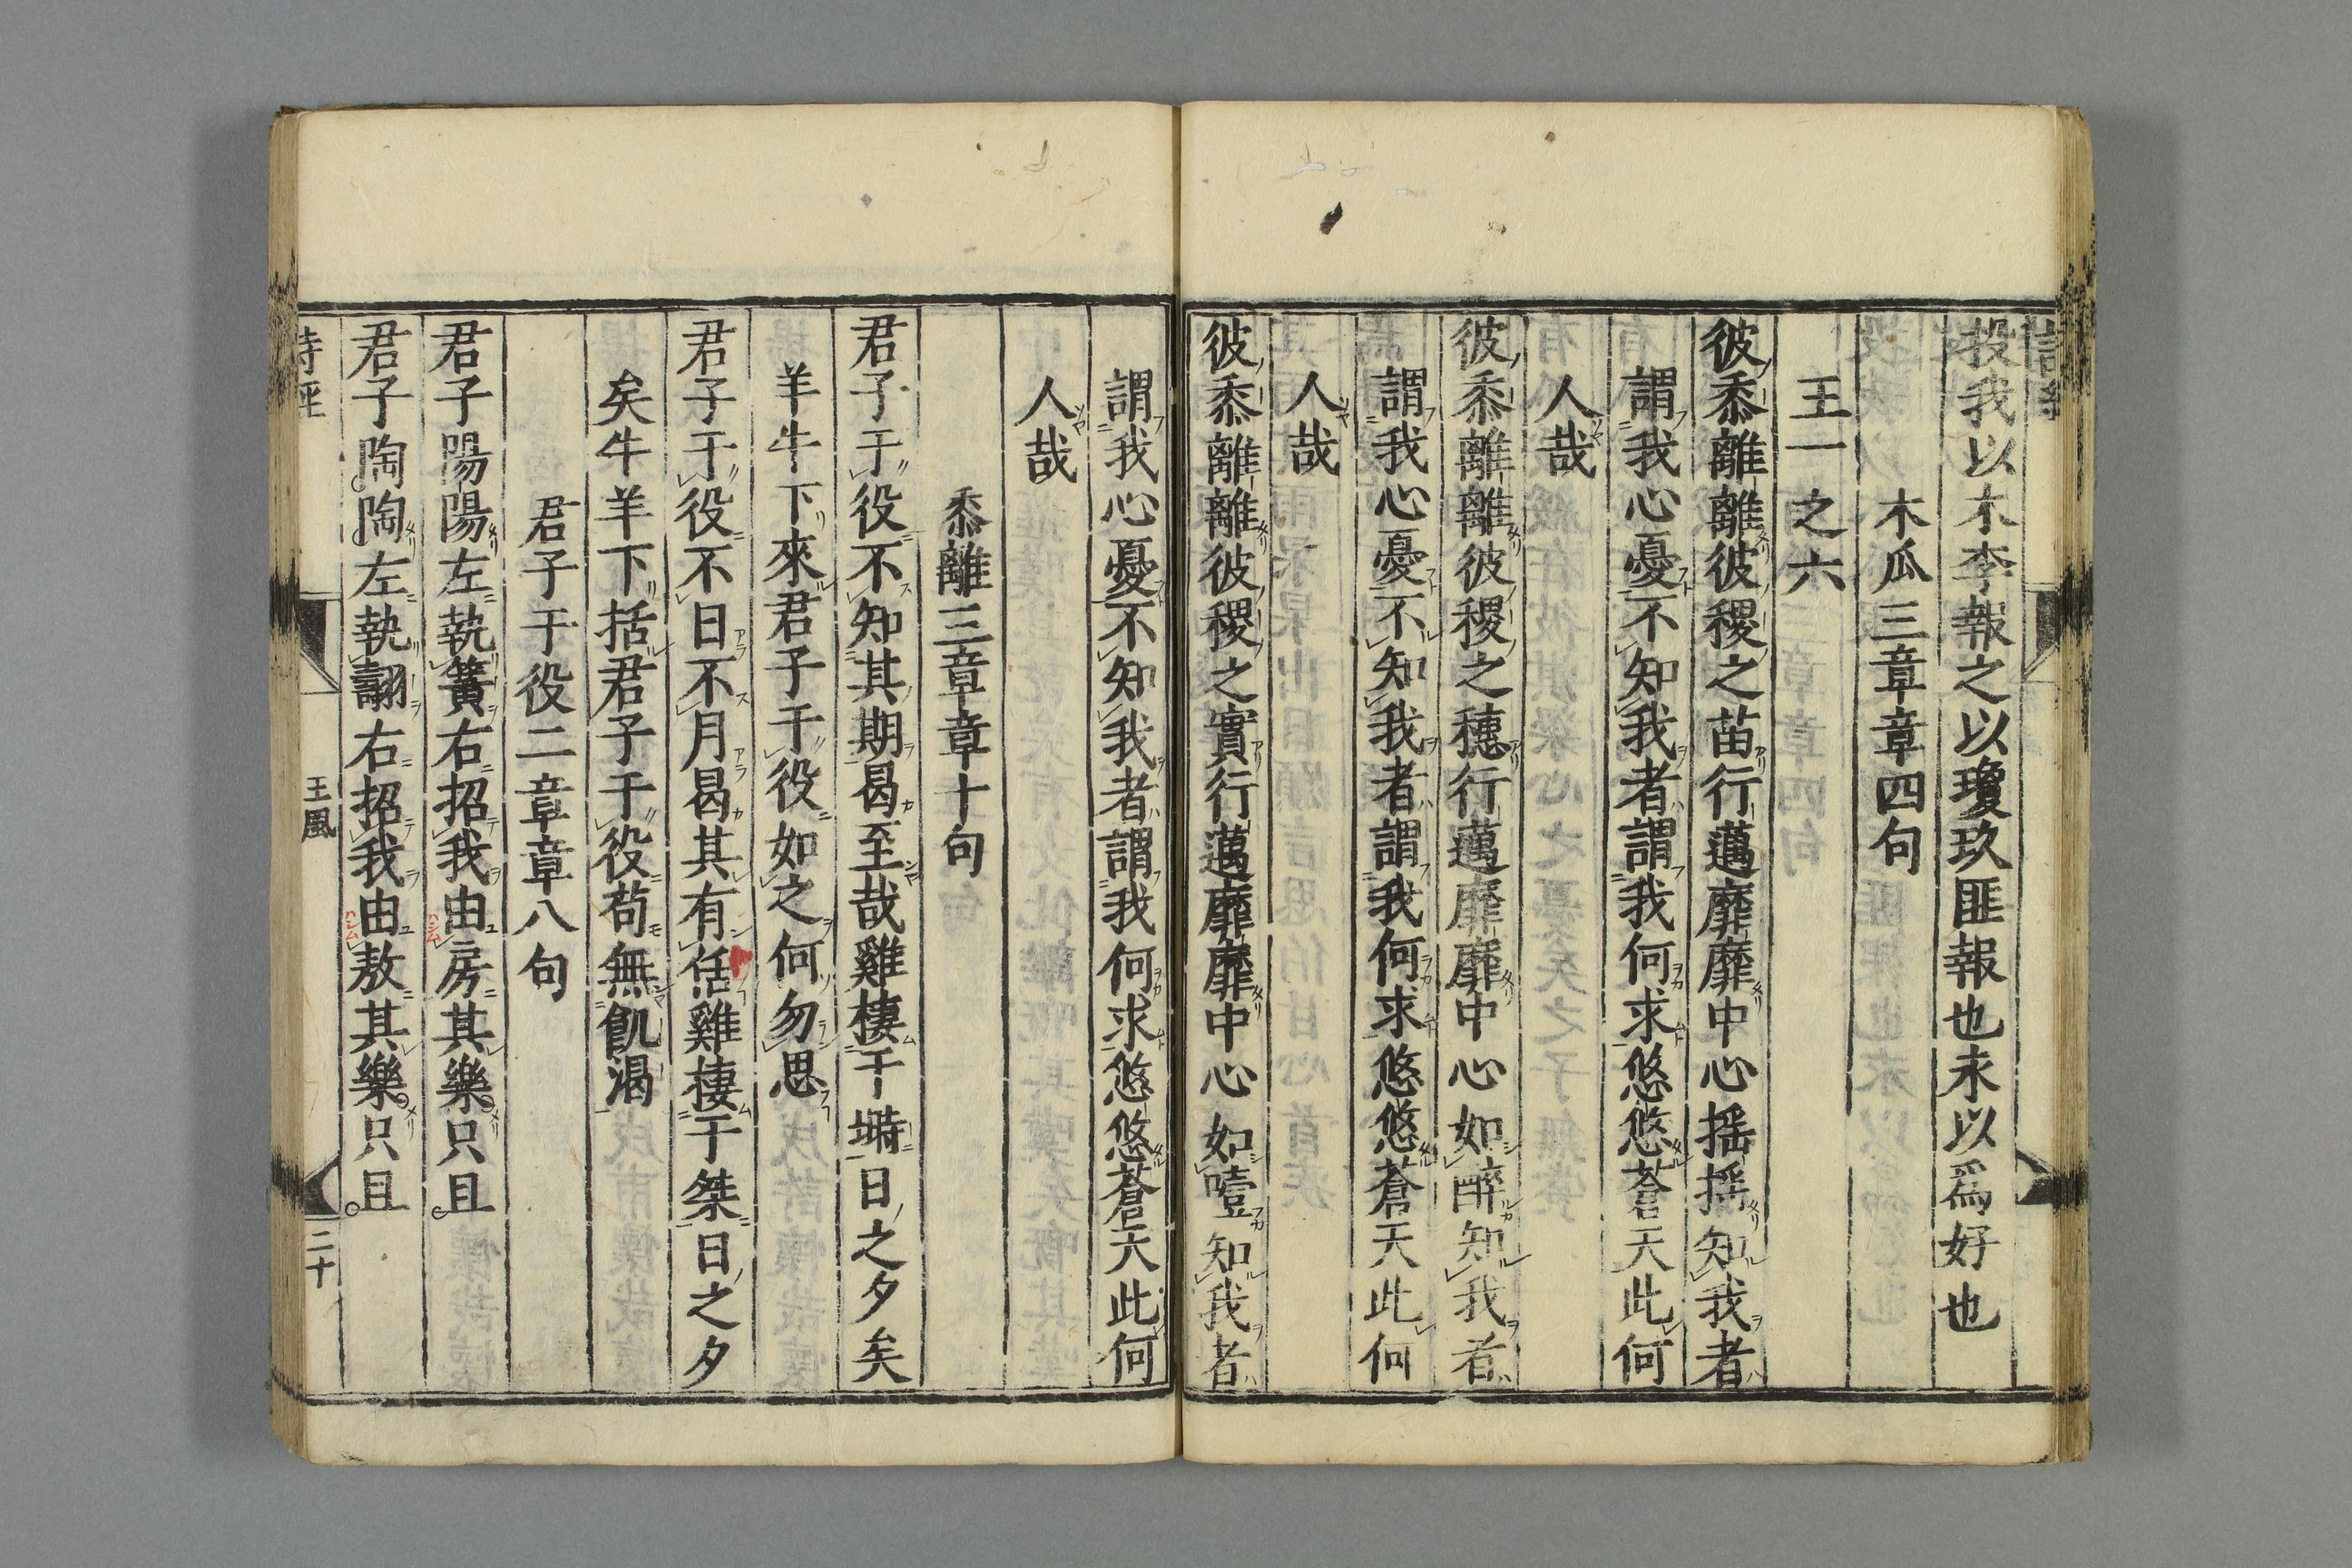 投我以木李報之以瓊玖匪報也永以爲好也
木瓜三章章四句
王一之六
彼黍離離彼稷之苗行邁靡靡中心搖搖知我者
謂我心憂不知我者謂我何求悠悠蒼天此何
人哉
彼黍離離彼稷之穗行邁靡靡中心如醉知我者
謂我心憂不知我者謂我何求悠悠蒼天此何
人哉
彼黍離離彼稷之實行邁靡靡中心如噎知我者
謂我心憂不知我者謂我何求悠悠蒼天此何
人哉
黍離三章章十句
君子于役不知其期曷至哉雞棲于塒日之夕矣
羊牛下來君子于役如之何勿思
君子于役不日不月曷其有佸雞棲于桀日之夕
矣牛羊下括君子于役苟無飢渴
君子于役二章章八句
君子陽陽左執簧右招我由房其樂只且
君子陶陶左執翿右招我由敖其樂只且
詩經
王風
二十